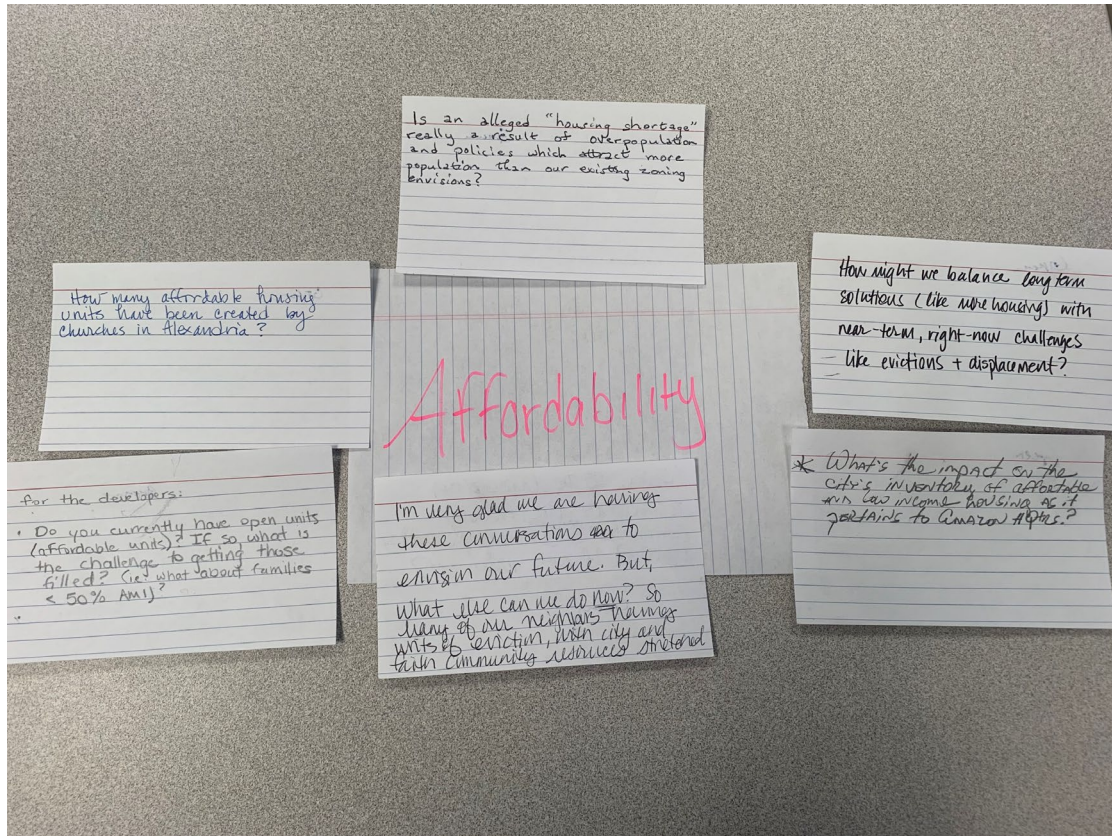 Is an alleged "housing shortage"
really a result of overpopulation
and policies which attract more
population than our existing zoning
envisions?
How many affordable housing
units have been created by
churches in Alexandria?
How might we balance long term
solutions (like more housing) with
near-term, right-now challenges
like evictions + displacement?
Affordability
for the developers:
• Do you currently have open units
(affordable units)? If so, what is
the challenge to getting those
filled? (ie. what about families
< 50% AMI)?
I'm very glad we are having
these conversations to
envision our future. But,
what else can we do now? So
many of our neighbors having
writs of eviction, with city and
faith community resources stretched
* What's the impact on the
city's inventory of affortable
low income housing as it
pertains to Amazon HQtrs.?